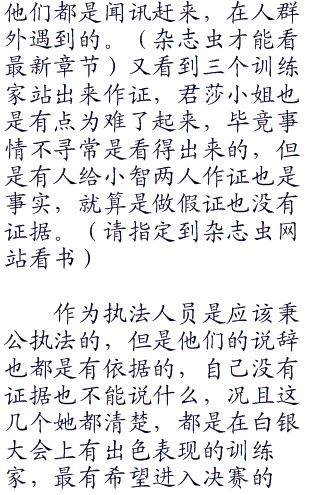 他们都是闻讯赶来，在人群
外遇到的。（杂志虫才能看
最新章节）又看到三个训练
家站出来作证，君莎小姐也
是有点为难了起来，毕竟事
情不寻常是看得出来的，但
是有人给小智两人作证也是
事实，就算是做假证也没有
证据。（请指定到杂志虫网
站看书）
作为执法人员是应该秉
公执法的，但是他们的说辞
也都是有依据的，自己没有
证据也不能说什么，况且这
几个她都清楚，都是在白银
大会上有出色表现的训练
家，最有希望进入决赛的